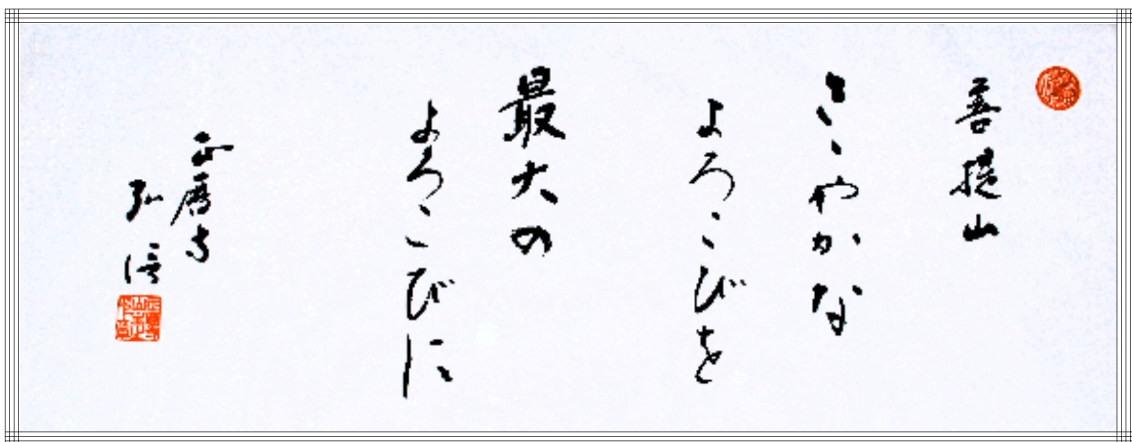 菩提山
さゝやかな
よろこびを
最大の
よろこびに
正暦寺
弘信